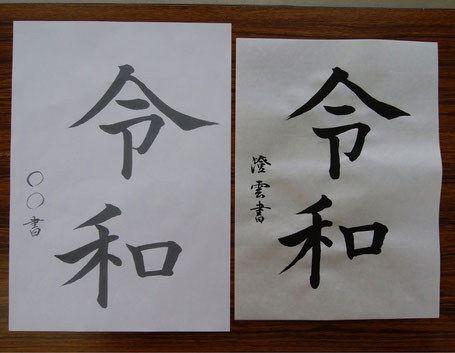 令和
〇〇書
令和
澄雲書